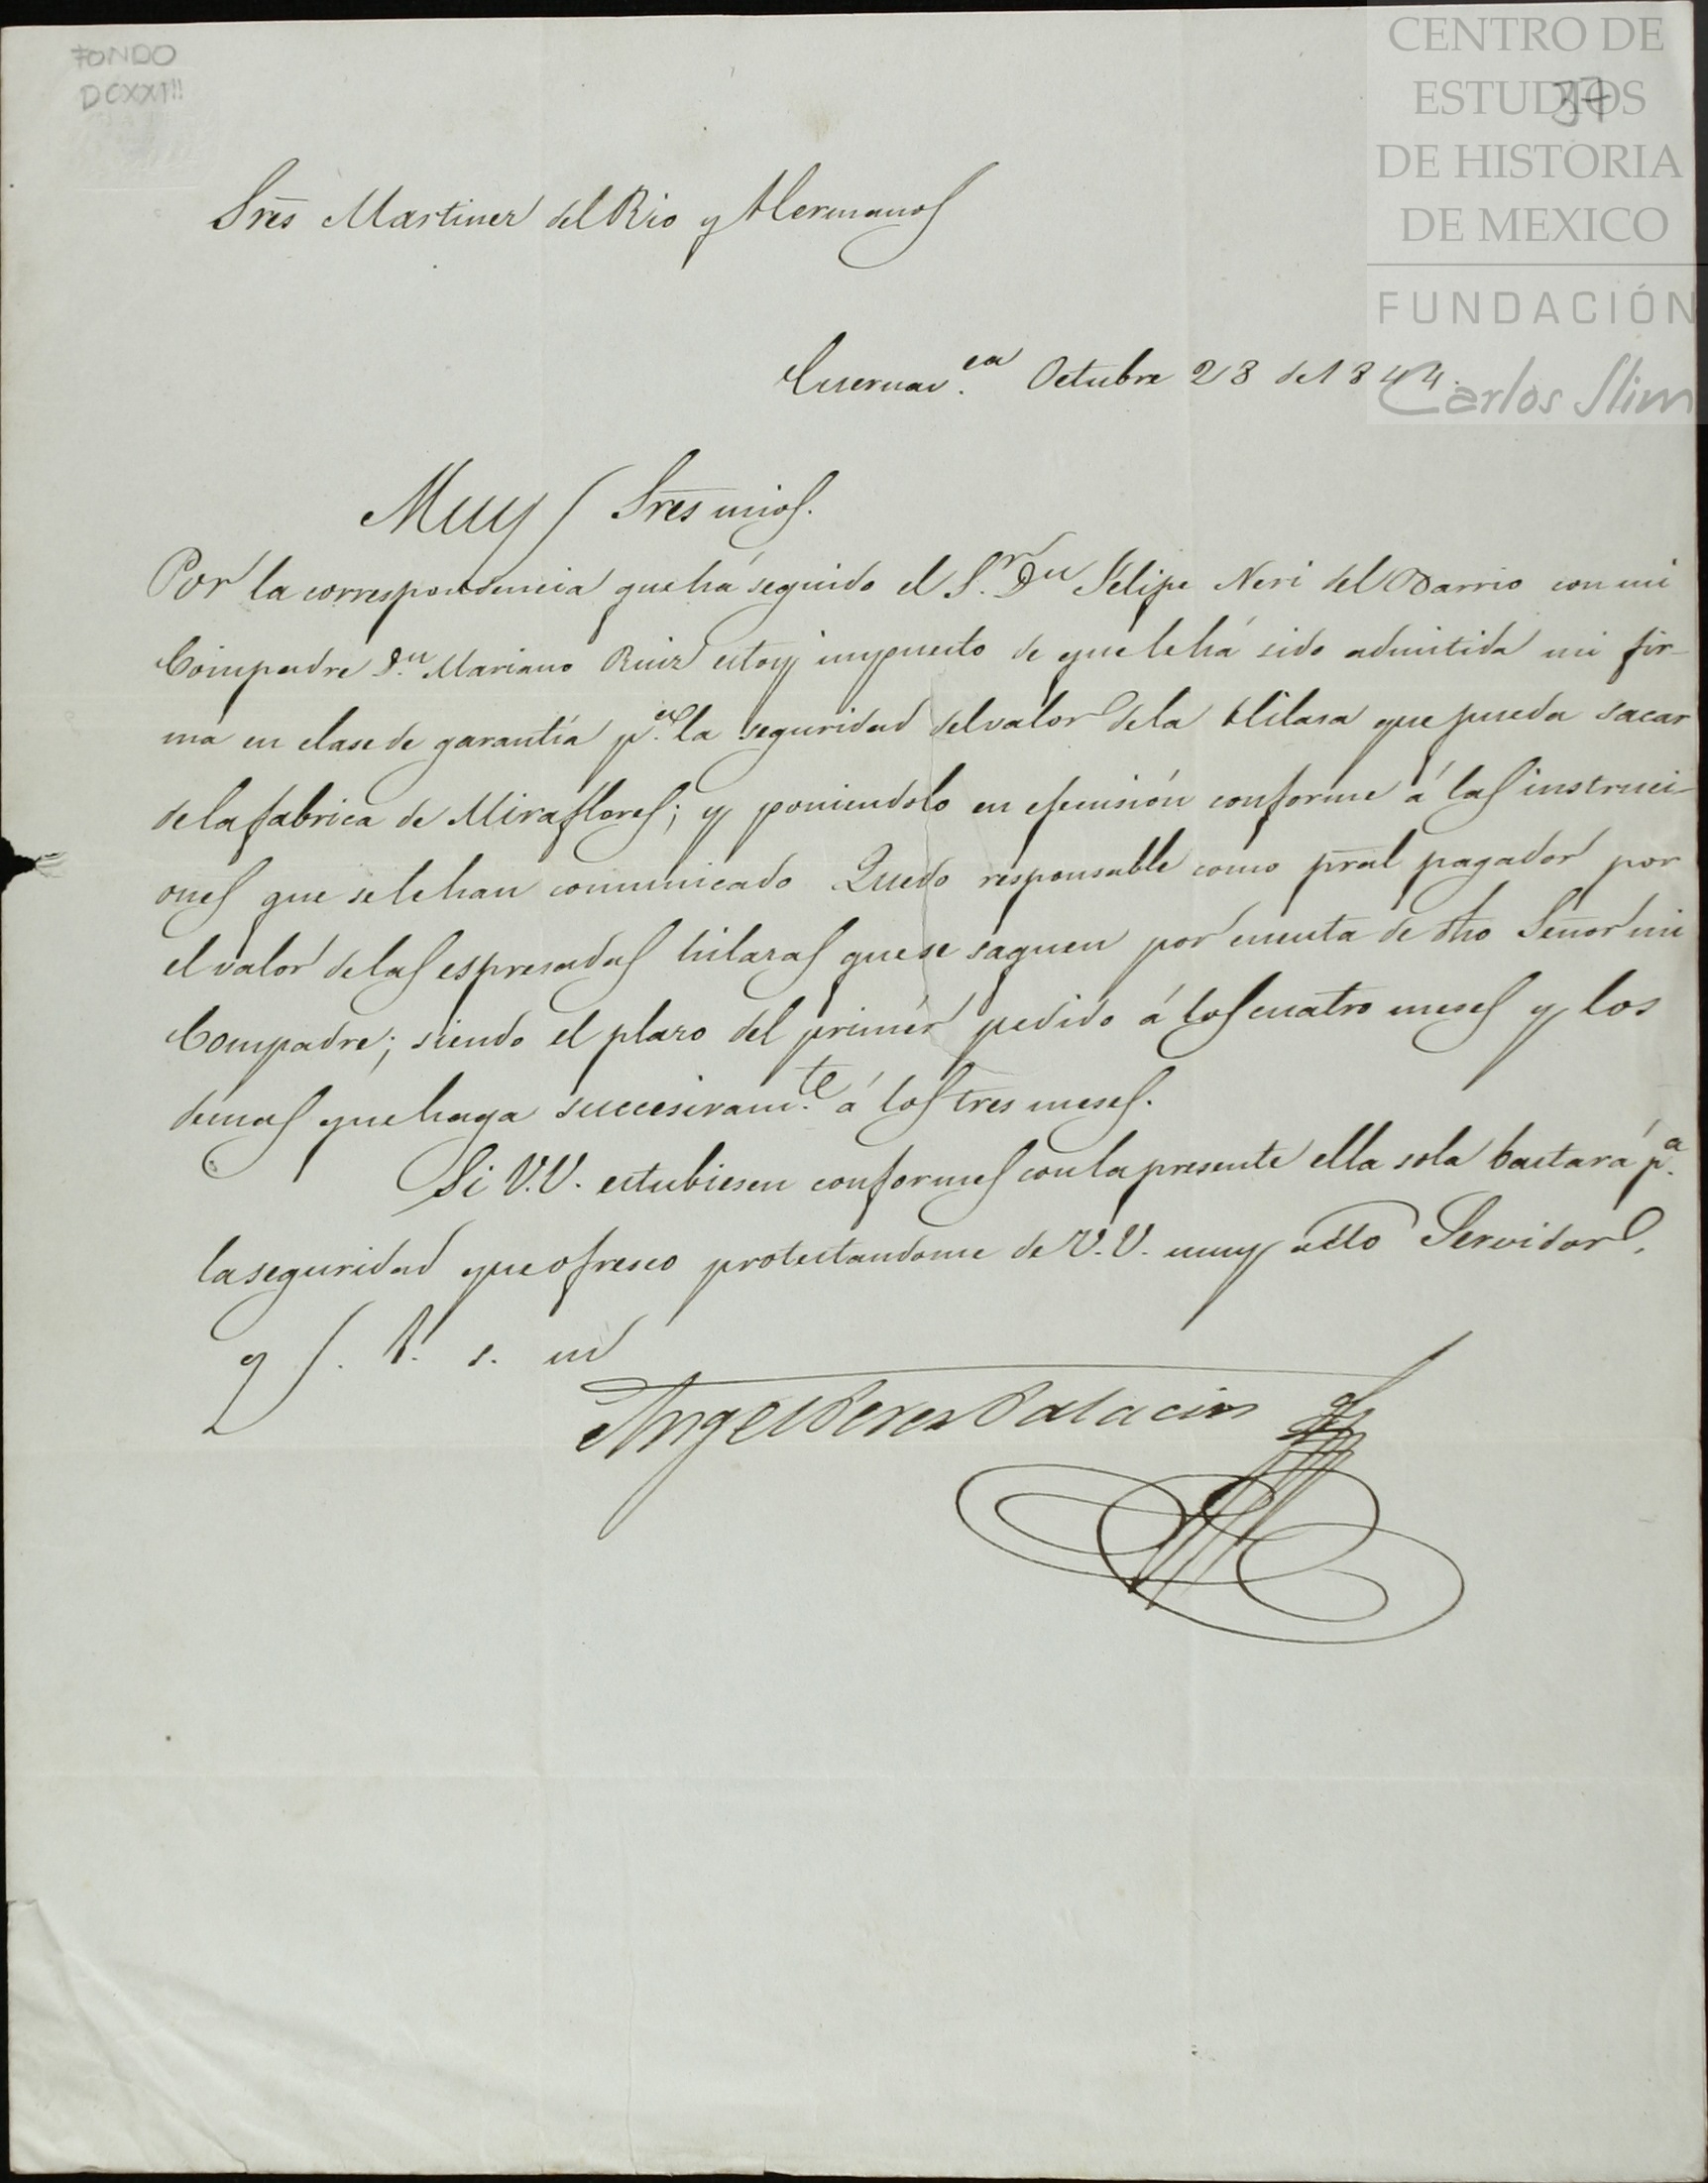 FONDO
DCXXIII
CENTRO DE
ESTUDIOS
DE HISTORIA
DE MEXICO
FUNDACIÓN
Carlos Slim
37
Sres Martinez del Rio y Hermanos
Cuernav.ca Octubre 28 de 1844.
Muy Sres mios.
Por la correspondencia que há seguido el S.r Dn Felipe Neri del Barrio con mi
Compadre D.n Mariano Ruiz estoy impuesto de que le há sido admitida mi fir-
ma en clase de garantía p.a la seguridad del valor de la Hilasa que pueda sacar
de la fabrica de Miraflores; y poniendolo en efecusión conforme á las instruci-
ones que se le han comunicado Quedo responsable como pral pagador por
el valor de las espresadas hilazas que se saquen por cuenta de dho Señor mi
Compadre; siendo el plazo del primér pedido á los cuatro meses y los
demas que haga succesivam.te á los tres meses.
Si V.V. estubiesen conformes con la presente ella sola bastará p.a
la seguridad que ofresco protestandome de V.V. muy atto Servidor,
q S. B. s. m
Angel Perez Palacios